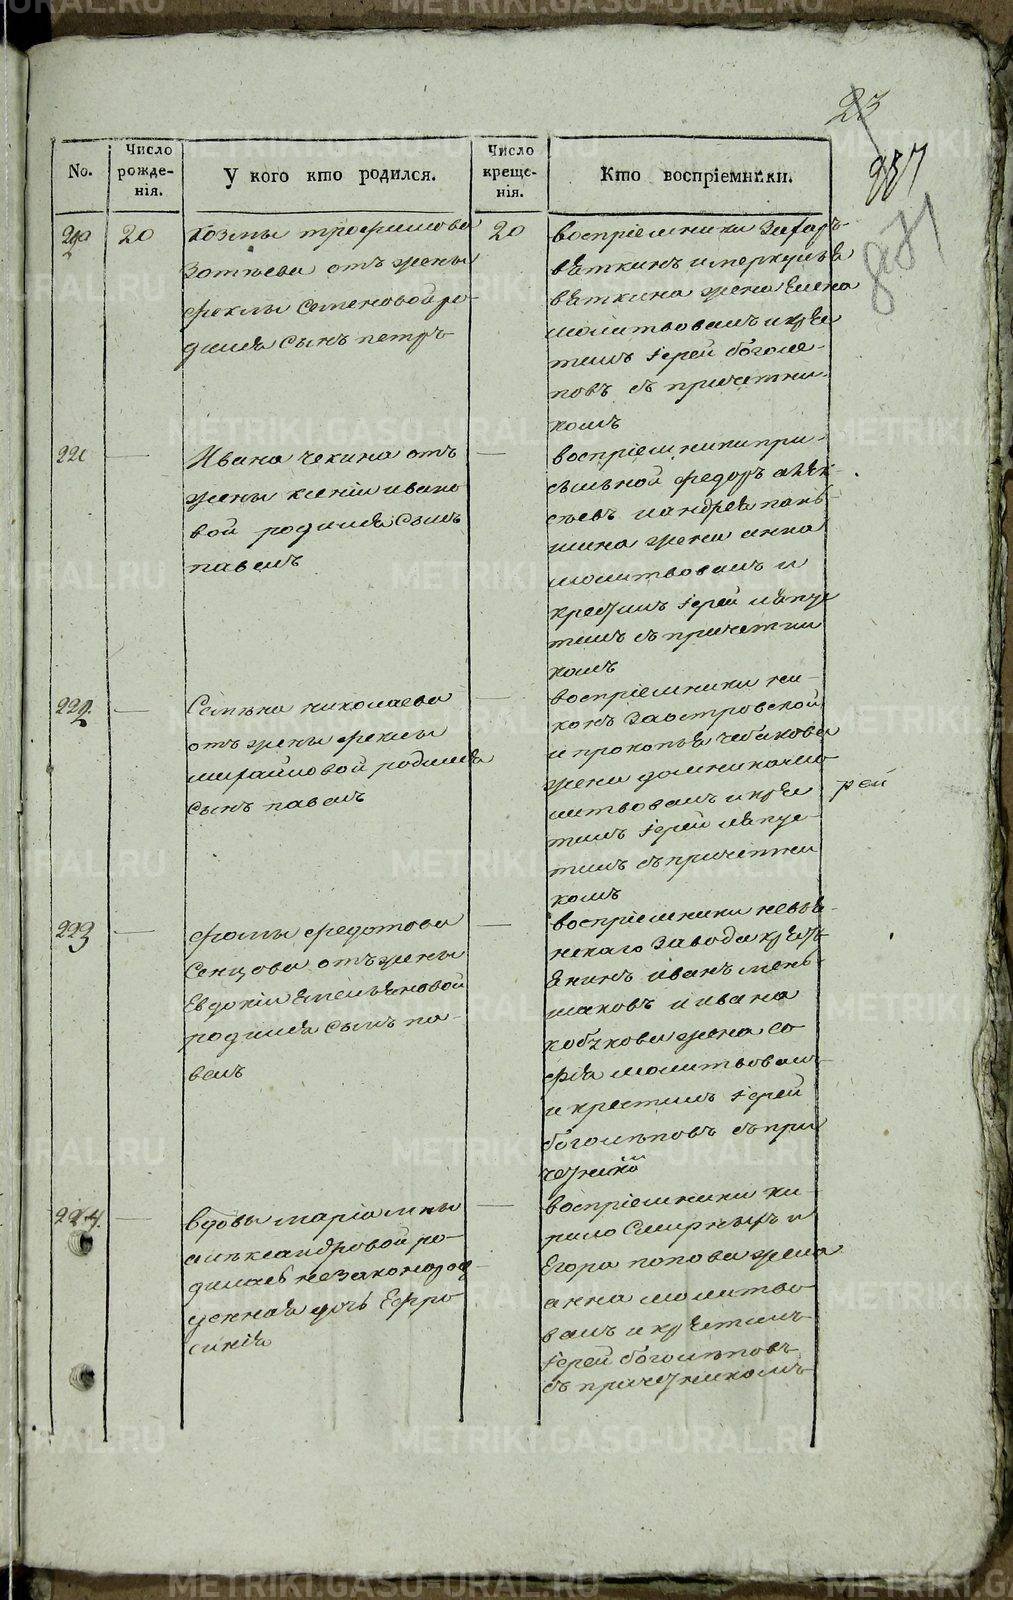 23
237
871
No.
Число рожде-нія.
У кого кто родился.
Число креще-нія.
Кто воспріемники.
220
20
Козмы трофимова
Зотѣева отъ жены
феклы семеновой ро-
дился сынъ петръ
20
воспріемники Захаръ
вяткинъ и меркулья
вяткина жена Елена
молитвовалъ и кре
тилъ іерей боголе-
повъ съ причетни-
комъ
221
Ивана чекина отъ
жены ксеніи ивано
вой родился сынъ
павелъ
воспріемники при-
сыльной федоръ алек-
сѣевъ и андрея пань
шина жена анна
молитвовалъ и
крестилъ іерей
тилъ съ причетни
комъ
222
Семена николаева
отъ жены феклы
михайловой родился
сынъ павелъ
воспріемники ни-
конъ Заостровской
и прокопья чебакова
жена домника мо-
литвовалъ и кре
рей
тилъ іерей
тилъ съ причетни
комъ
223
фомы федотова
Сенцова отъ жены
Евдокіи Емельяновой
родился сынъ па-
велъ
воспріемники невья-
нскаго завода крестъ
янинъ иванъ мень-
шаковъ и ивана
кобякова жена со
фья молитвовалъ
и крестилъ іерей
боголѣповъ съ при
четнико
224.
вдовы маріамны
александровой ро-
дилась незаконорож-
денная дочь Ефро
синія
воспріемники ки
рило Смирныхъ и
Егора попова жена
анна молитво
валъ и крестилъ
іерей боголѣповъ
съ причетникомъ
METRIKI.GASO-URAL.RU